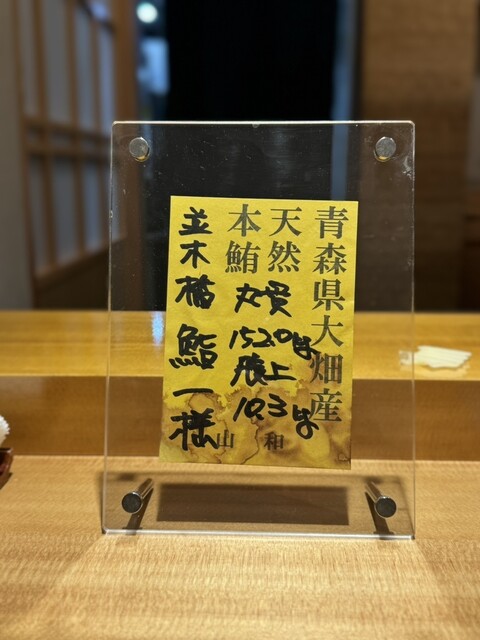 青森県大畑産
天然
本鮪
丸
152.0kg
腹上
10.3kg
並木橋 鮨一様
山和